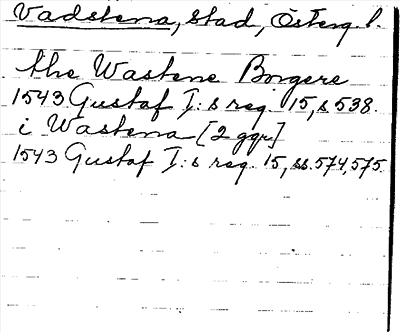 Vadstena, stad, Österg. l.
the Wastene Borgere
1543 Gustaf I:s reg. 15, s 538.
i Wastena [2 ggr]
1543 Gustaf I:s reg. 15, ss. 574, 575.